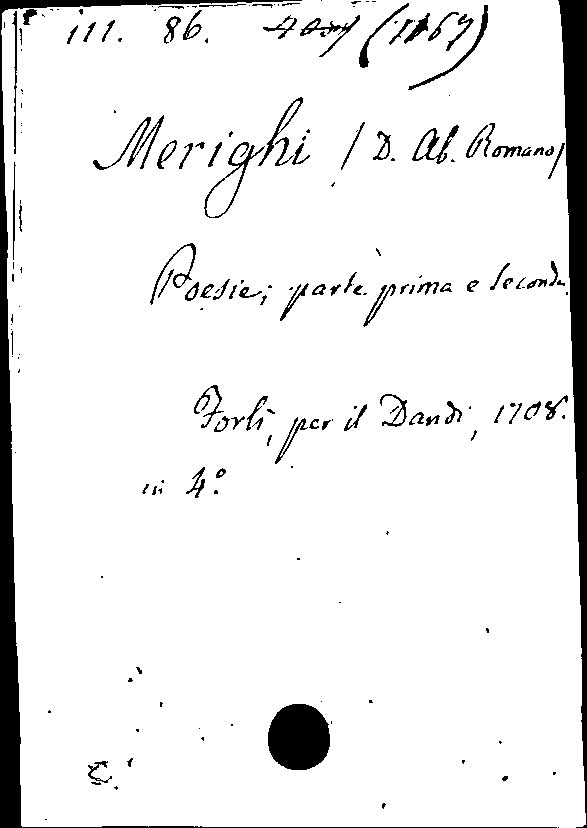 111. 86. (1167)
Merighi / D. Ab. Romano /
Poesie; parte prima e seconda
Forlì, per il Dandi, 1708.
in 4º.
C.